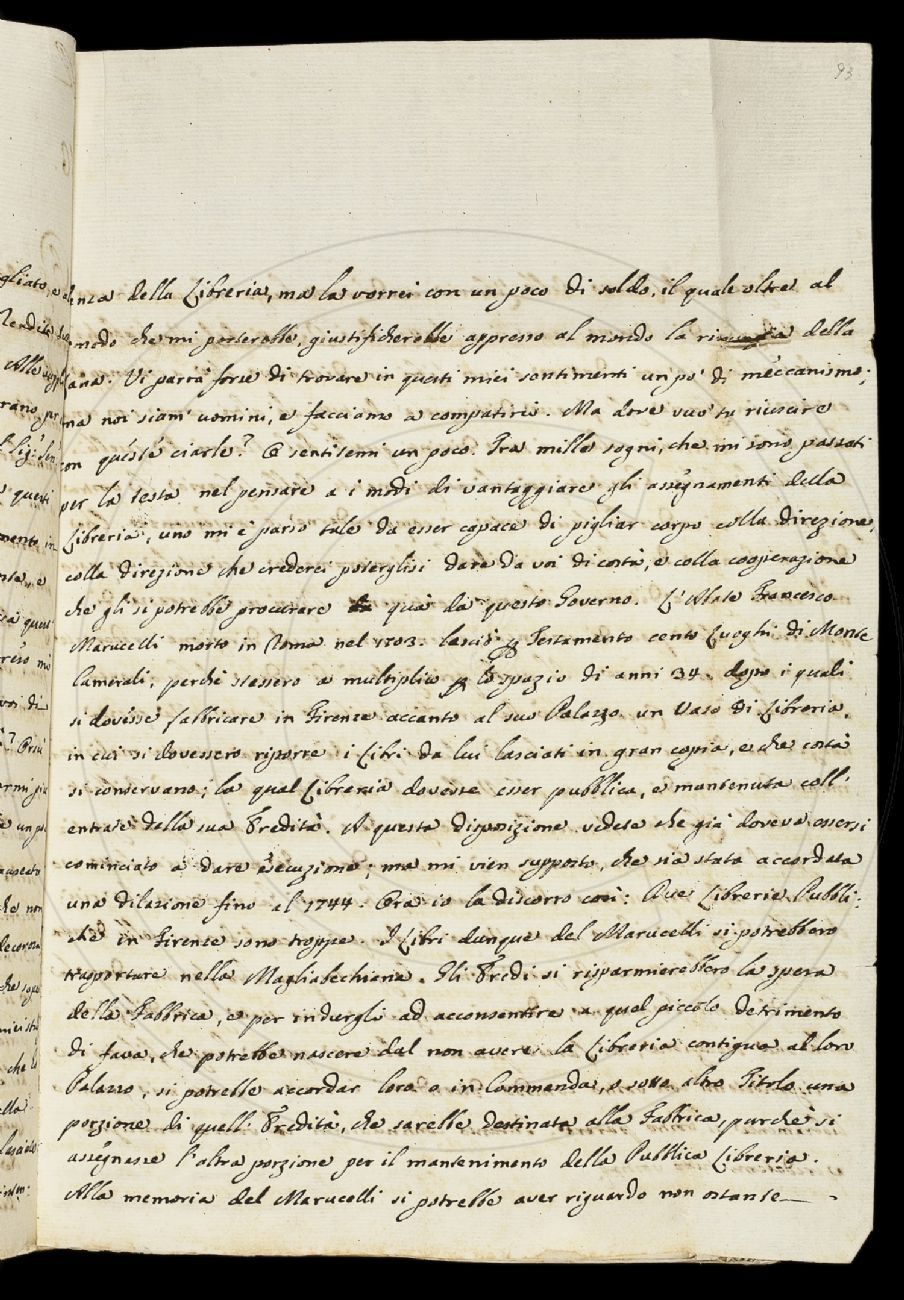 93
denza della Libreria, ma la vorrei con un poco di soldo, il quale oltre al
modo che mi porterebbe, giustificherebbe appresso al mondo la rinunzia della
Vi parrà forse di trovare in questi miei sentimenti un pò di meccanismo;
ma noi siam' uomini, e facciamo a compatirci. Ma dove vuo' tu riuscire
con queste ciarle? O sentitemi un poco. Tra mille sogni, che mi sono passati
per la testa nel pensare a i modi di vantaggiare gli assegnamenti della
Libreria, uno mi è parso tale da esser capace di pigliar corpo colla direzione,
colla direzione che crederei poterglisi dare da voi di costà, e colla cooperazione
che gli si potrebbe procurare quà da questo Governo. L'Abate Francesco
Marucelli morto in Roma nel 1703. lasciò p Testamento cento Luoghi di Monte
Camerali, perchè stassero a multiplico p lo spazio di anni 34. dopo i quali
si dovesse fabbricare in Firenze accanto al suo Palazzo un Vaso di Libreria,
in cui si dovessero riporre i Libri da lui lasciati in gran copia, e che costà
si conservano; la qual Libreria dovesse esser pubblica, e mantenuta coll'
entrate della sua Eredità. A questa disposizione vedete che già doveva essersi
cominciato a dare esecuzione; ma mi vien supposto, che sia stata accordata
una dilazione fino al 1744. Ora io la discorro così: Due Librerie Pubbli:
che in Firenze sono troppe. I Libri dunque del Marucelli si potrebbero
trasportare nella Magliabechiana. Gli Eredi si risparmierebbero la spesa
della Fabbrica, e per indurgli ad acconsentire a quel piccolo detrimento
di fama, che potrebbe nascere dal non avere la Libreria contigua al loro
Palazzo, si potrebbe accordar loro o in Commenda, o sotto altro Titolo una
porzione di quell' Eredità, che sarebbe destinata alla Fabbrica, purchè si
assegnasse l'altra porzione per il mantenimento della Pubblica Libreria.
Alla memoria del Marucelli si potrebbe aver riguardo non ostante